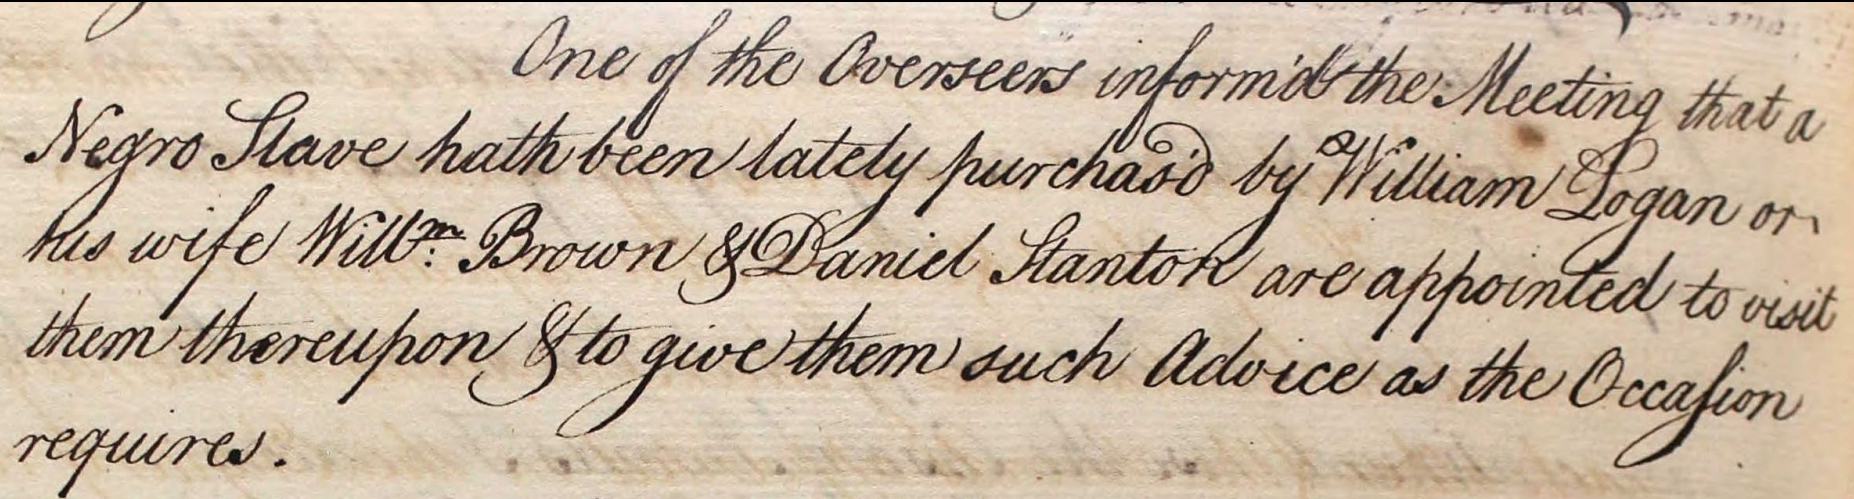 One of the Overseers inform'd the Meeting that a
Negro Slave hath been lately purchas'd by William Logan or
his wife Will.m Brown & Daniel Stanton are appointed to visit
them thereupon & to give them such Advice as the Occasion
requires.